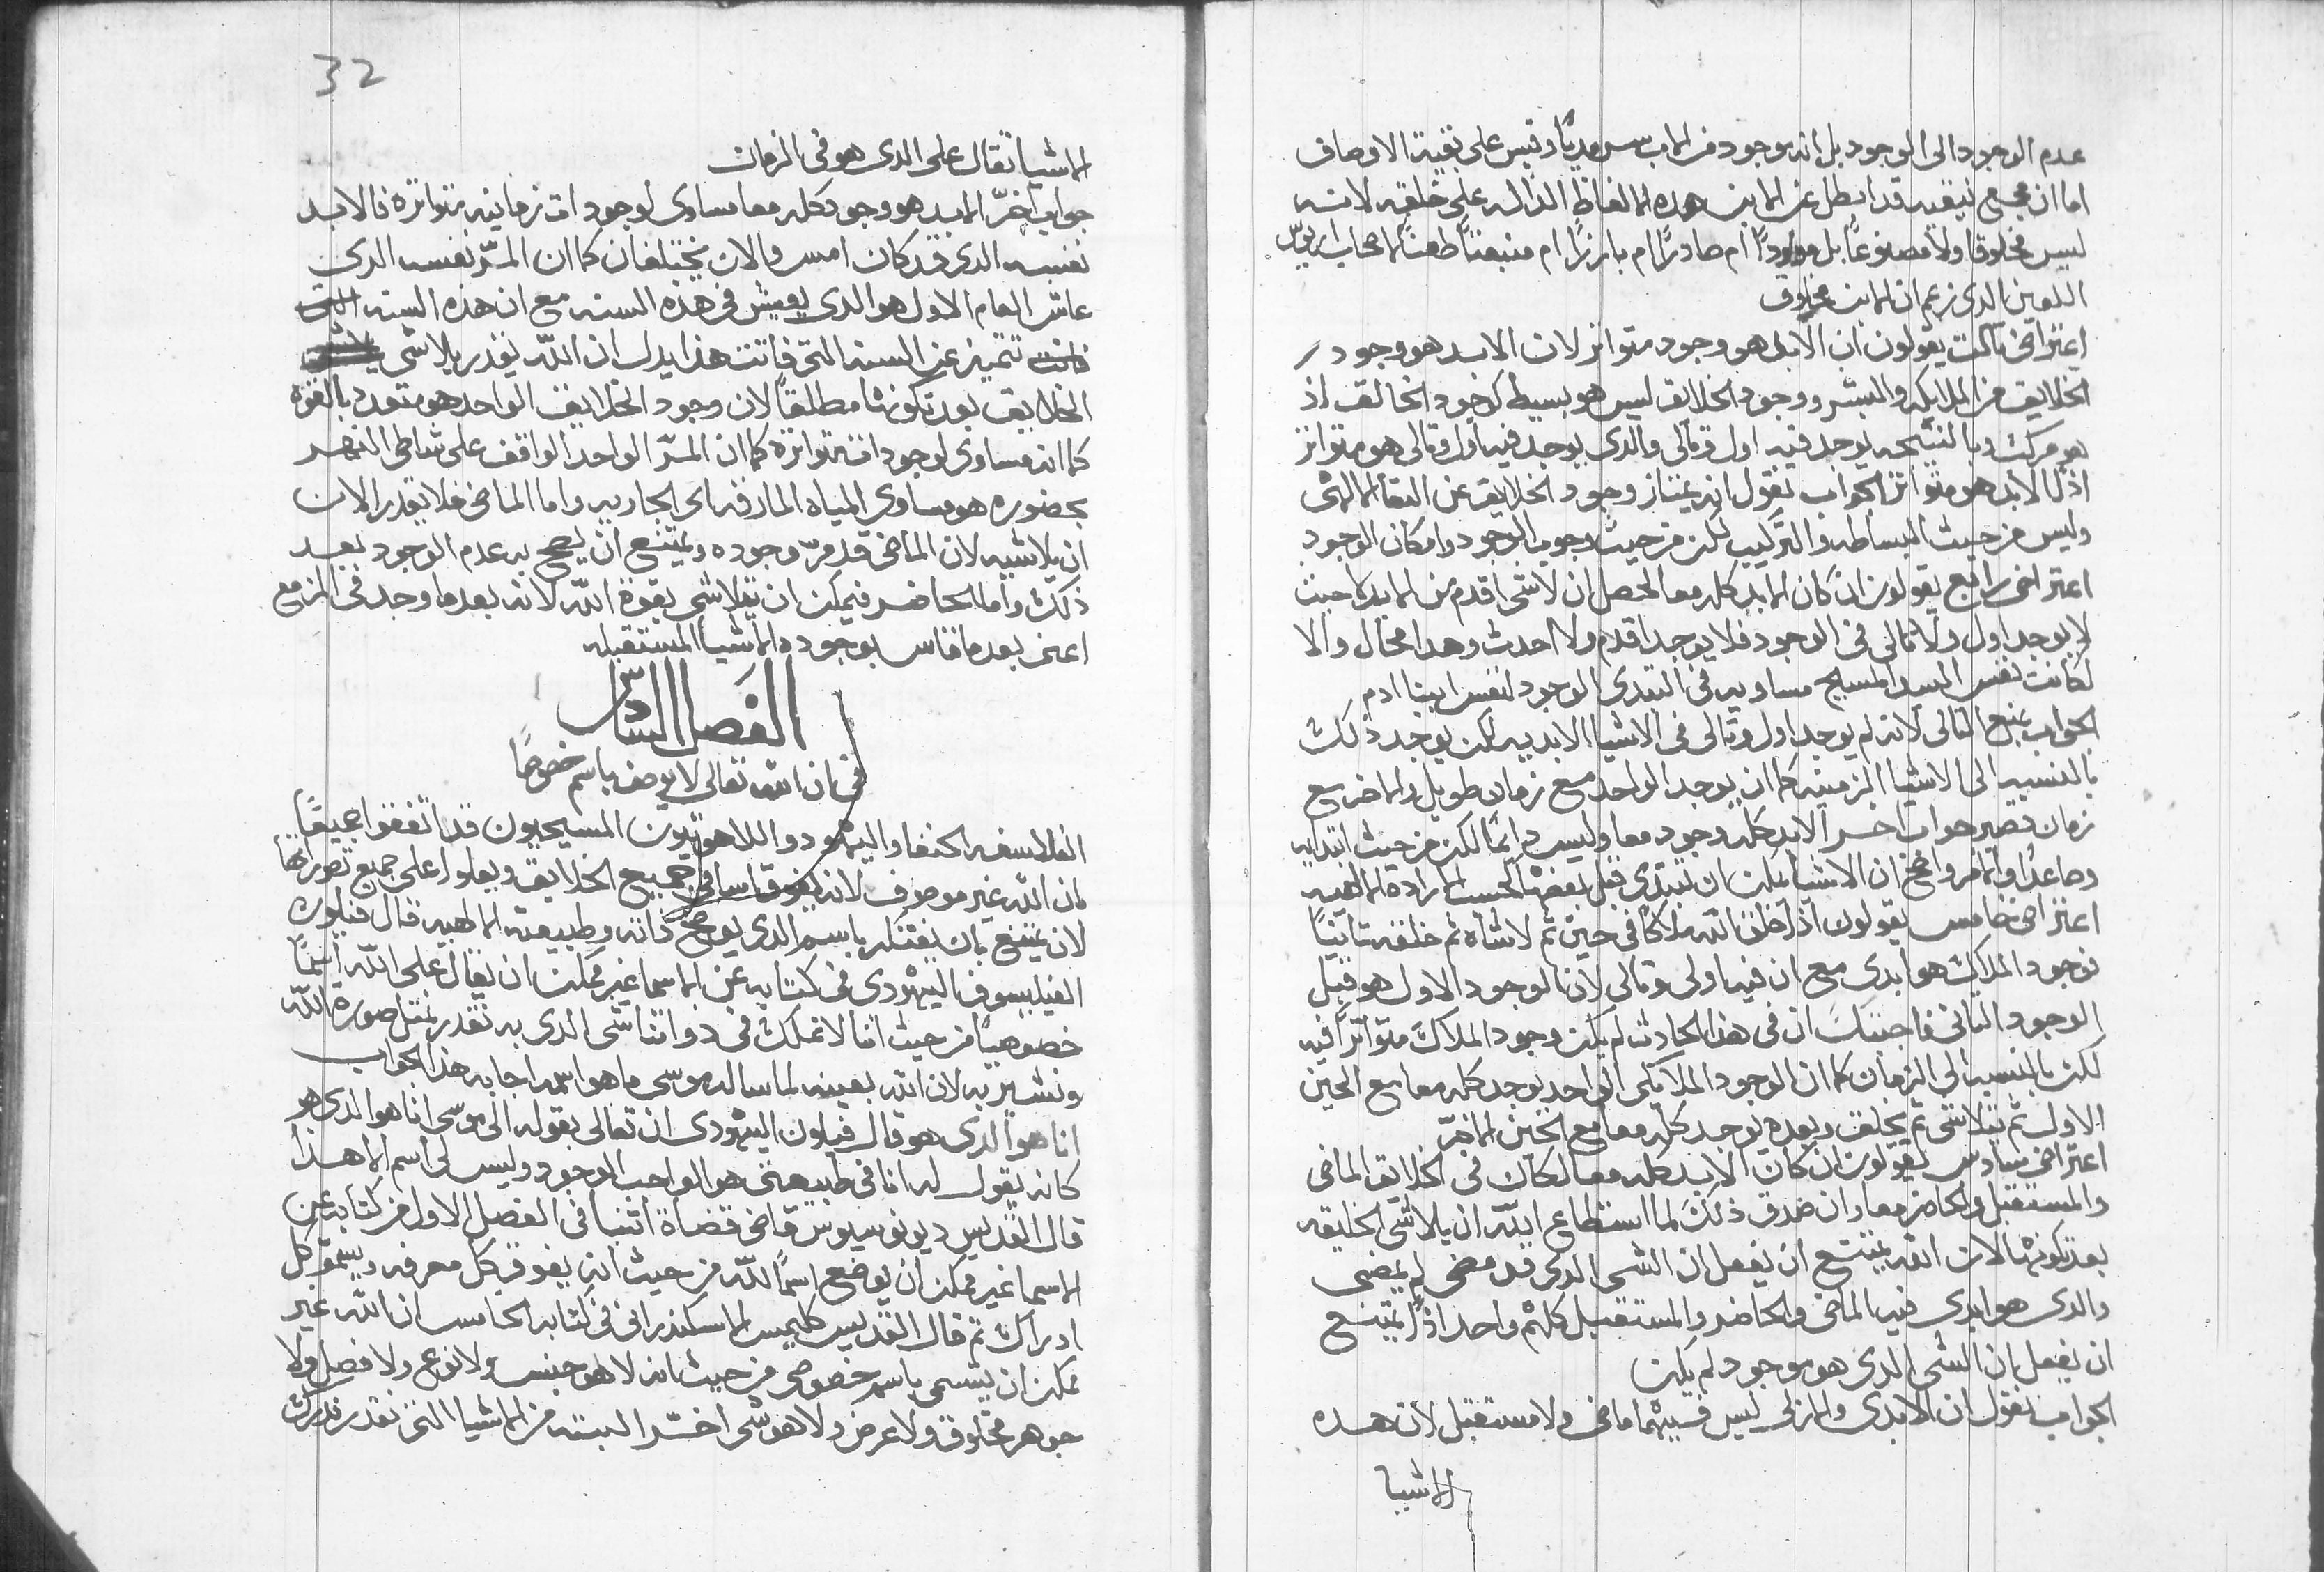 عدم الوجود الى الوجود بل انه موجود من الاب سرمديًا وقيس على بقية الاوصاف
اما ان مجمع نيقيه قد ابطل عن الابن هذه الالفاظ الداله على خلقه لانه
ليس مخلوقا ولا مصنوعًا بل مولودًا ام صادرًا ام بارزًا ام منبعثًا طعنًا لاصحاب اريوس
اللعين الدى زعم ان الابن مخلوق
اعتراض تالت يقولون ان الابد هو وجود متواتر لان الابد هو وجود
الخلايق من الملايكه والبشر ووجود الخلايق ليس هو بسيط كوجود الخالق اذ
هو مركب وبالنتيجه يوجد فيه اول وتالى والدى يوجد فيه اول وتالى هو متواتر
اذًا الابد هو متواتر الجواب نقول انه يمتاز وجود الخلايق عن البقا الالهى
وليس من حيث البساطه والتركيب لكن من حيث وجوب الوجود وامكان الوجود
اعتراض رابع يقولون ان كان الابد كله معا لحصل ان لا شى اقدم من الابد حيث
لا يوجد اول ولا تالى فى الوجود فلا يوجد اقدم ولا احدث وهدا محال والا
لكانت نفس السيد المسيح مساويه فى ابتدى الوجود لنفس ابينا ادم
الجواب يمنع التالى لانه لم يوجد اول وتالى فى الاشيا الابديه لكن يوجد ذلك
بالنسبه الى الاشيا الزمنيه كما ان يوجد الواحد مع زمان طويل والاخر مع
زمان قصير جواب اخر الابد كله وجود معا وليس دايمًا لكن من حيث ابتدايه
وصاعدًا والامر واضح ان الاشيا يمكن ان تبتدى قبل بعضها كحسب الارادة الالهيه
اعتراض خامس يقولون اذا خلق الله ملاكًا فى حين ثم لاشاه ثم خلقه ثانيًا
فوجود الملاك هو ابدى مع ان فيه اولى وتالى لان الوجود الاول هو قبل
الوجود التانى فاجبتك ان فى هذا الحادث لم يكن وجود الملاك متواترًا فيه
لكن بالنسبه الى الزمان كما ان الوجود الملايكى الواحد يوجد كله معا مع الحين
الاول ثم يتلاشى ثم يخلق وبعده يوجد كله معا مع الحين الاخر
اعتراض سادس يقولون ان كان الابد كله معا لكان فى الخلايق الماضى
والمستقبل والحاضر معا وان صدق ذلك لما استطاع الله ان يلاشى الخليقه
بعد تكونها لان الله يمتنع ان يفعل ان الشى الدى قد مضى لم يمضى
والدى هو ابدى فيه الماضى والحاضر والمستقبل كلهم واحد اذًا يمتنع
ان يفعل بان الشى الدى هو موجود لم يكن
الجواب نقول ان الابدى والازلى ليس فيهما ماضى ولا مستقبل لان هده
الاشيا
32
الاشيا تقال على الدى هو فى الزمان
جواب اخر الابد هو وجود كله معا مساوى لوجودات زمانيه متواتره فالابد
نفسه الدى قد كان امس والان يختلفان كما ان المر نفسه الدى
عاش العام الاول هو الدى يعيش فى هذه السنه مع ان هذه السنه
تتميز عن السنه التى فاتت هذا يدل ان الله يقدر يلاشى
الخلايق بعد تكونها مطلقًا لان وجود الخلايق الواحد هو متعدد بالقوه
كما انه مساوى لوجودات متواتره كما ان المر الواحد الواقف على شاطى النهر
بحضوره هو مساوى المياه المارقه اى الجاريه واما الماضى فلا يقدر الان
ان يلاشيه لان الماضى قد مر وجوده ويمتنع ان يصح به عدم الوجود بعد
ذلك واما الحاضر فيمكن ان يتلاشى بقوة الله لانه بعد ما وجد فى المزمع
اعنى بعد ما قاس بوجوده الاشيا المستقبله
الفصل السادس
فى ان الله تعالى لا يوصف باسم خصوصًا
الفلاسفه الحنفا واليهود واللاهوتيون المسيحيون قد اتفقوا جميعًا
بان الله غير موصوف لانه يفوق جميع الخلايق ويعلو على جميع تصورها
لان يمتنع بان يفتكر باسم الدى يوضح ذاته وطبيعته الالهيه قال فيلون
الفيلسوف اليهودى فى كتابه عن الاسما غير ممكن ان يقال على الله اسمًا
خصوصيًا من حيث اننا لا نملك فى دواتنا شى الدى به نقدر نمثل صورة الله
ونشير به لان الله بعينه لما ساله موسى ما هو اسمه اجابه هذا الجواب
انا هو الدى هو قال فيلون اليهودى ان تعالى بقوله الى موسى انا هو الدى هو
كانه يقول له انا فى طبيعتى هو الواجب الوجود وليس لى اسم الا هذا
قال القديس ديونوسيوس قاضى قضاة اثنا فى الفصل الاول من كتابه عن
الاسما غير ممكن ان يوضع اسمًا لله من حيث انه يفوق كل معرفه ويسمو كل
ادراك ثم قال القديس كليمس الاسكندرانى فى كتابه الخامس ان الله غير
ممكن ان يتسمى باسم خصوصى من حيث انه لا هو جنس ولا نوع ولا فصل ولا
جوهر مخلوق ولا عرض ولا هو شى اخر البته من الاشيا التى نقدر ندرك